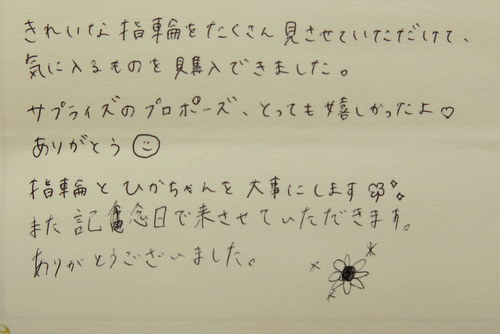 きれいな指輪をたくさん見させていただけて、
気に入るものを購入できました。
サプライズのプロポーズ、とっても嬉しかったよ♡
ありがとう☺
指輪とひかちゃんを大事にします
また記念日で来させていただきます。
ありがとうございました。